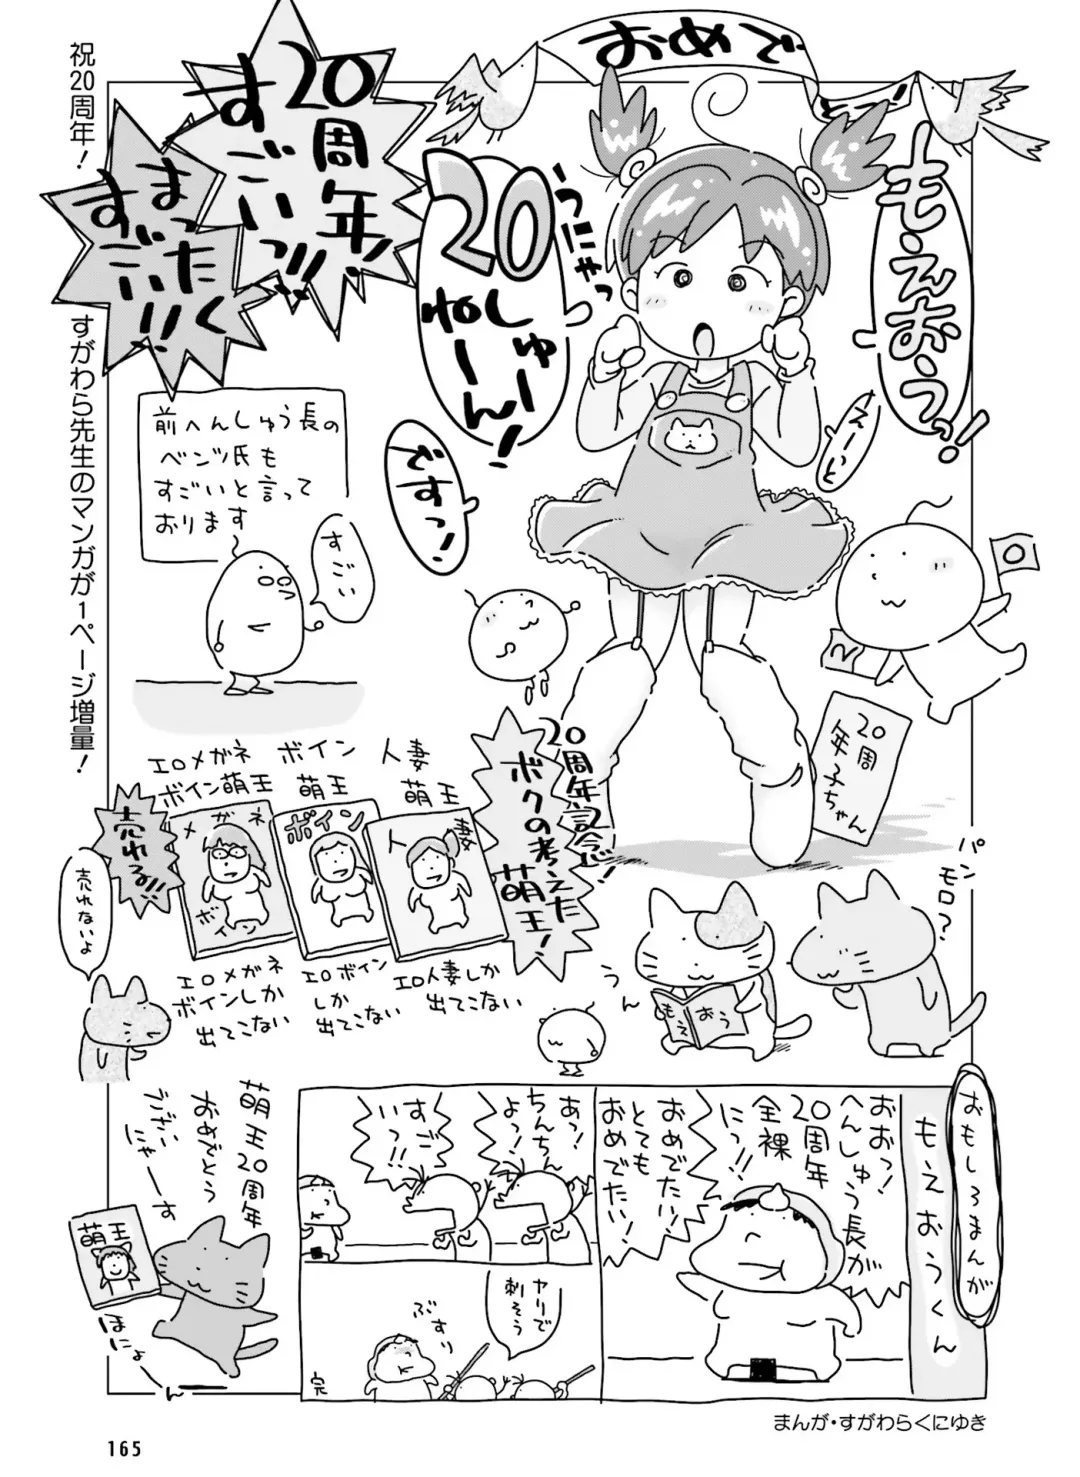 祝20周年!
すがわら先生のマンガが1ページ増量!
おめで
とっ!
もえおうっ!
えーっと
うにゃっ
20
しゅー
ねーん!
ですっ!
20周年、
すごいっ!!
まったく
すごい!!
前へんしゅう長の
ベンツ氏も
すごいと言って
おります
すごい
20
20周
年子ちゃん
20周年記念!
ボクの考えた
萌王!
人妻
萌王
人妻
エロ人妻しか
出てこない
ボイン
萌王
ボイン
エロボイン
しか
出てこない
エロメガネ
ボイン萌王
メガネ
ボイン
エロメガネ
ボインしか
出てこない
売れる!!
売れないよ
パン
モロ?
うん
もえ
おう
萌王20周年
おめでとう
ござい
にゃーす
萌王
ほにょーん
おもしろまんが
もえおうくん
おおっ!
へんしゅう長が
20周年
全裸
にっ!!
おめでたい!
とても
おめでたい!
あっ!
ちんち
よっ!
すご
いっ!!
ヤリで
刺そう
ぶすり
完
まんが・すがわらくにゆき
165